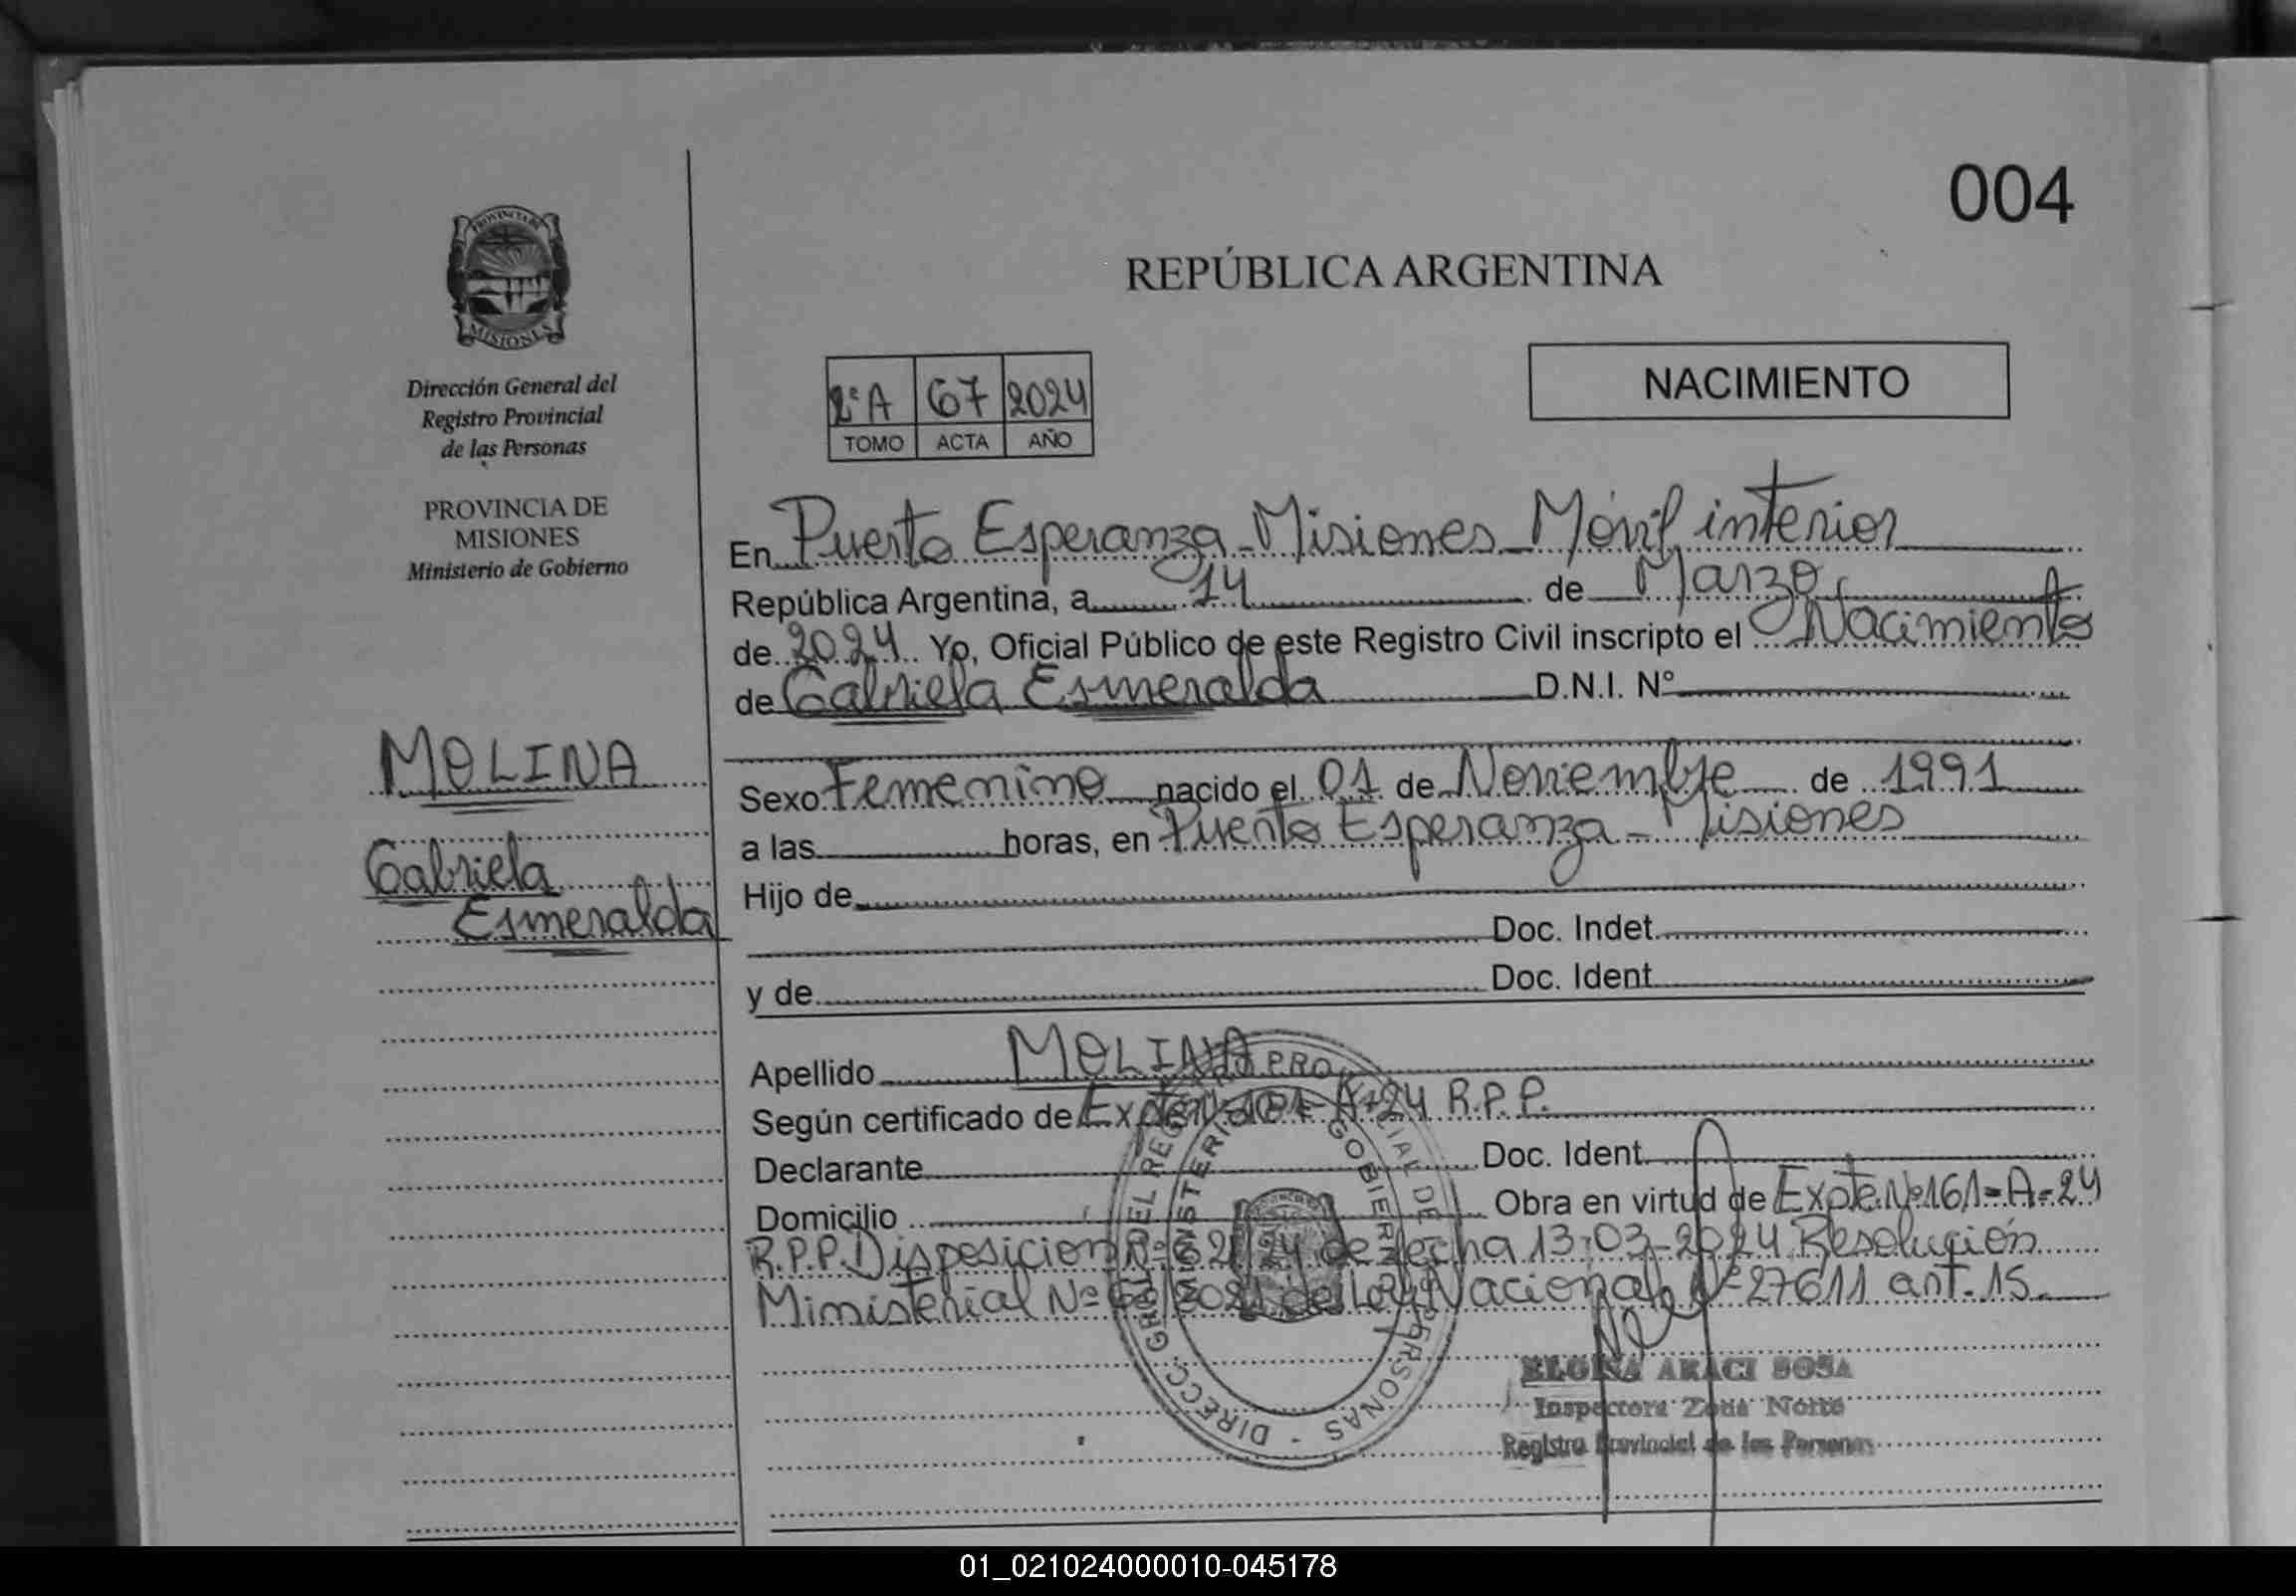 004
REPÚBLICA ARGENTINA
PROVINCIA DE
MISIONES
Dirección General del
Registro Provincial
de las Personas
PROVINCIA DE
MISIONES
Ministerio de Gobierno
2ºA 67 2024
TOMO ACTA AÑO
NACIMIENTO
MOLINA
Gabriela
Esmeralda
En Puerto Esperanza - Misiones Móvil interior
República Argentina, a 14 de Marzo
de 2024 Yo, Oficial Público de este Registro Civil inscripto el Nacimiento
de Gabriela Esmeralda D.N.I. Nº
Sexo Femenino nacido el 01 de Noviembre de 1991
a las horas, en Puerto Esperanza - Misiones
Hijo de
Doc. Indet.
y de Doc. Ident.
Apellido MOLINA
Según certificado de Expte Nº 161-A-24 R.P.P.
Declarante Doc. Ident.
Domicilio Obra en virtud de Expte. Nº161-A-24
R.P.P. Disposicion Nº 621/24 de fecha 13-03-2024 Resolución
Ministerial Nº /2021 de Ley Nacional Nº27611 art. 15.
DIRECC. GRAL. DEL REGISTRO PROVINCIAL DE LAS PERSONAS -
MINISTERIO GOBIERNO
ARACI SOSA
Inspectora Zona Norte
Registro Provincial de las Personas
01_021024000010-045178